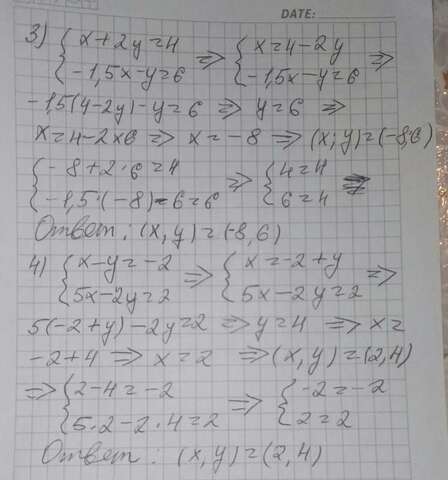 DATE:
3) { x+2y=4 ⇒ { x=4-2y ⇒
{ -1,5x-y=6 { -1,5x-y=6
-1,5(4-2y)-y=6 ⇒ y=6 ⇒
x=4-2×6 ⇒ x=-8 ⇒ (x; y)=(-8;6)
{ -8+2·6=4 ⇒ { 4=4
{ -1,5·(-8)-6=6 { 6=4
Ответ: (x, y)=(-8,6)
4) { x-y=-2 ⇒ { x=-2+y ⇒
{ 5x-2y=2 { 5x-2y=2
5(-2+y)-2y=2 ⇒ y=4 ⇒ x=
-2+4 ⇒ x=2 ⇒ (x, y)=(2,4)
⇒ { 2-4=-2 ⇒ { -2=-2
{ 5·2-2·4=2 { 2=2
Ответ: (x, y)=(2,4)